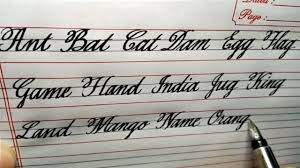 Date :
Page :
Ant Bat Cat Dam Egg Flag
Game Hand India Jug King
Land Mango Name Orang